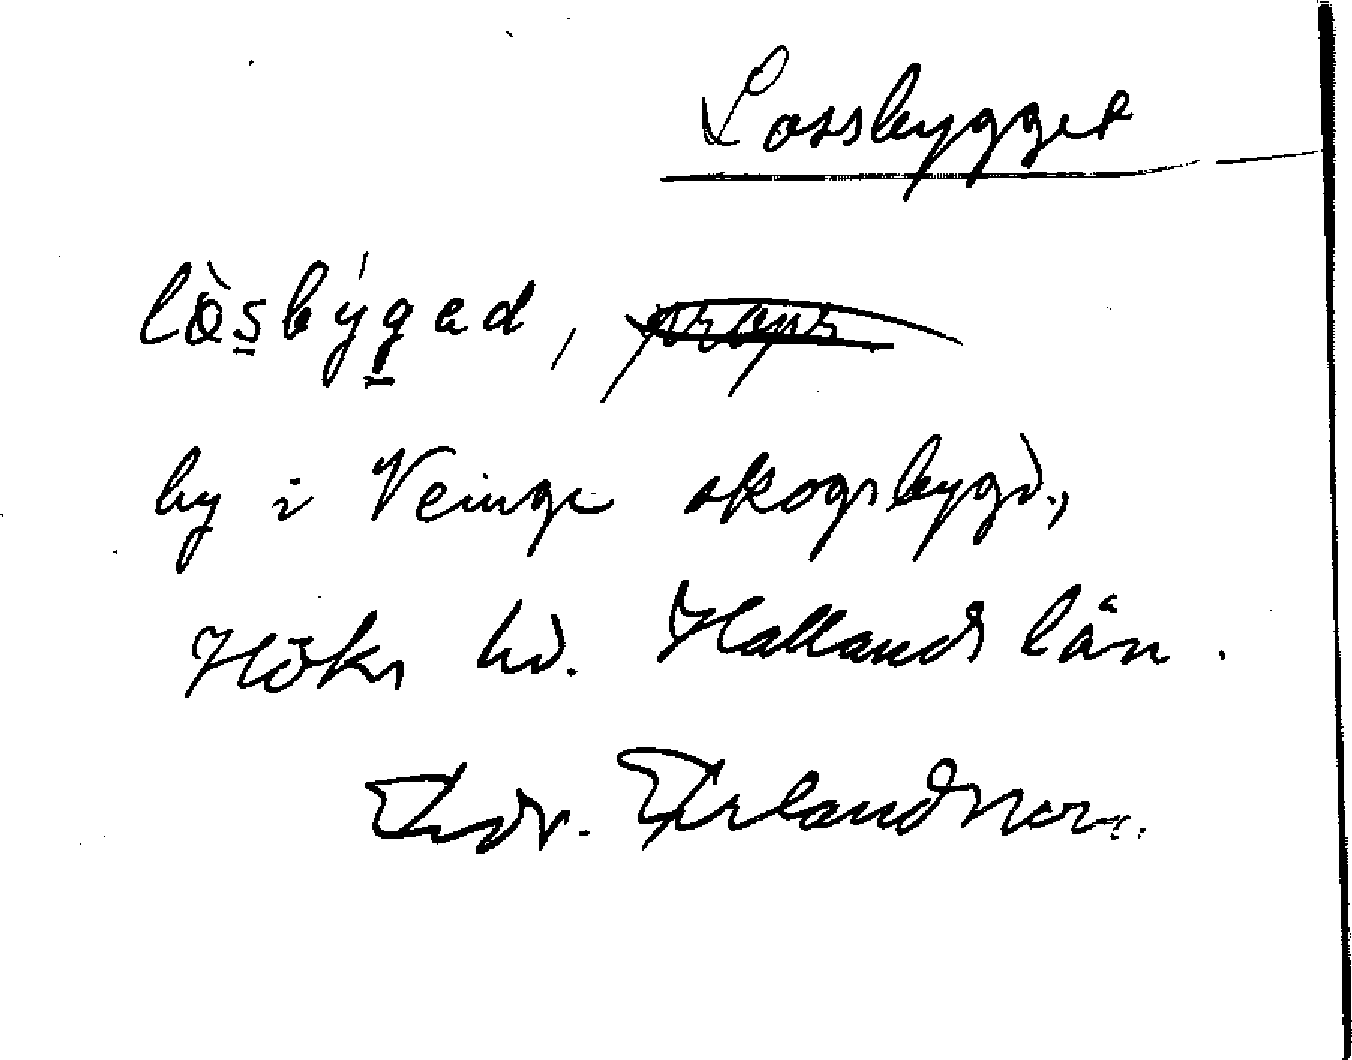 Lossbygget
lòs̲býg̲ad,
by i Veinge skogsbygd,
Höks hd. Hallands län.
Edv. Erlandsson.